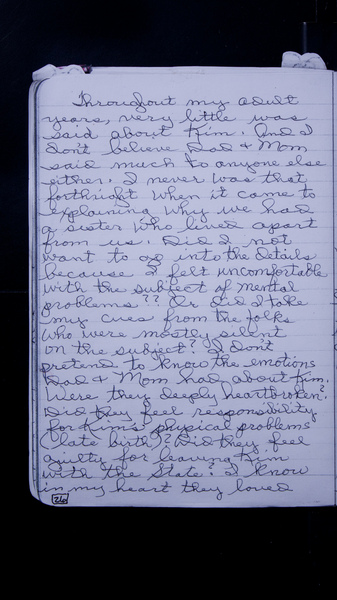 Throughout my adult
years, very little was
said about Kim. And I
don't believe Dad & Mom
said much to anyone else
either. I never was that
forthright when it came to
explaining why we had
a sister who lived apart
from us. Did I not
want to go into the details
because I felt uncomfortable
with the subject of mental
problems?? Or did I take
my cues from the folks
who were mostly silent
on the subject? I don't
pretend to know the emotions
Dad & Mom had about Kim.
Were they deeply heartbroken?
Did they feel responsibility
for Kim's physical problems
(late birth)? Did they feel
guilty for leaving Kim
with the State? I know
in my heart they loved
26